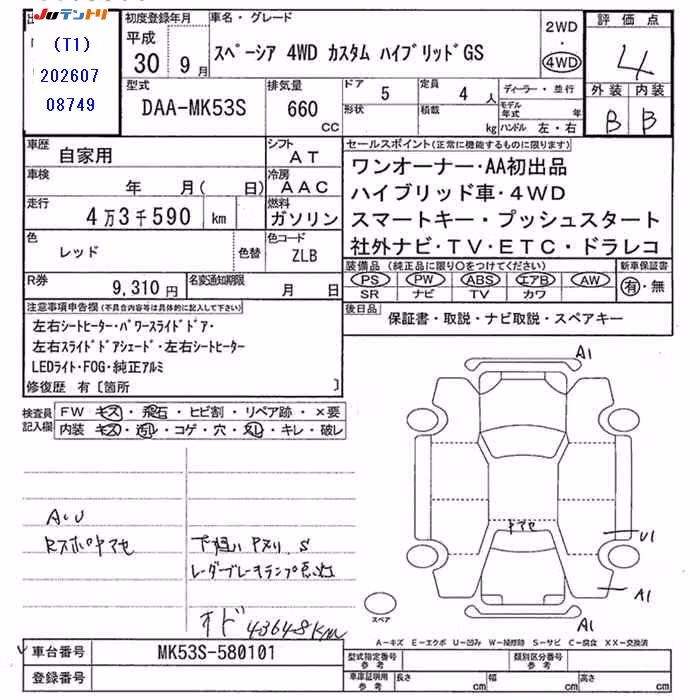 JUテントリ
(T1)
202607
08749
初度登録年月
平成
30 9月
車名・グレード
スペーシア 4WD カスタム ハイブリッドGS
2WD
・
4WD
評価点
4
外装 内装
B B
型式
DAA-MK53S
排気量
660
CC
ドア
5
定員
4 人
形状
積載
kg
ディーラー・並行
モデル年式 年
ハンドル 左・右
車歴
自家用
シフト
AT
車検
年 月( 日)
冷房
AAC
走行
4万3千590 km
燃料
ガソリン
色
レッド
色替
色コード
ZLB
R券
9,310円
名変通知期限
月 日
セールスポイント(正常に機能するものに限ります)
ワンオーナー・AA初出品
ハイブリッド車・4WD
スマートキー・プッシュスタート
社外ナビ・TV・ETC・ドラレコ
装備品(純正品に限り○をつけてください)
PS PW ABS エアB AW
SR ナビ TV カワ
新車保証書
有・無
後日品
保証書・取説・ナビ取説・スペアキー
注意事項申告欄(不具合内容等は具体的に記入して下さい)
左右シートヒーター・パワースライドドア・
左右スライドドアシェード・左右シートヒーター
LEDライト・FOG・純正アルミ
修復歴 有〔箇所 〕
検査員
記入欄
FW キズ・飛石・ヒビ割・リペア跡・×要
内装 キズ・汚レ・コゲ・穴・スレ・キレ・破レ
A・U
下廻り サビ S
レーダーブレーキランプ点灯
オド 43648km
A1
ヤマセ
U1
A1
A1
スペア
A-キズ E-エクボ U-凹み W-補修跡 S-サビ C-腐食 XX-交換済
車台番号
MK53S-580101
登録番号
型式指定番号
参考
類別区分番号
参考
車庫証明用
参考
長さ cm 幅 cm 高さ cm